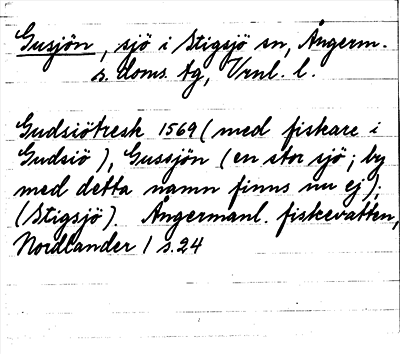 Gusjön, sjö i Stigsjö sn, Ångerm.
s. doms. tg, Vrnl. l.
Gudsiötresk 1569 (med fiskare i
Gudsiö), Gussjön (en stor sjö; by
med detta namn finns nu ej);
(Stigsjö). Ångermanl. fiskevatten,
Nordlander 1 s. 24